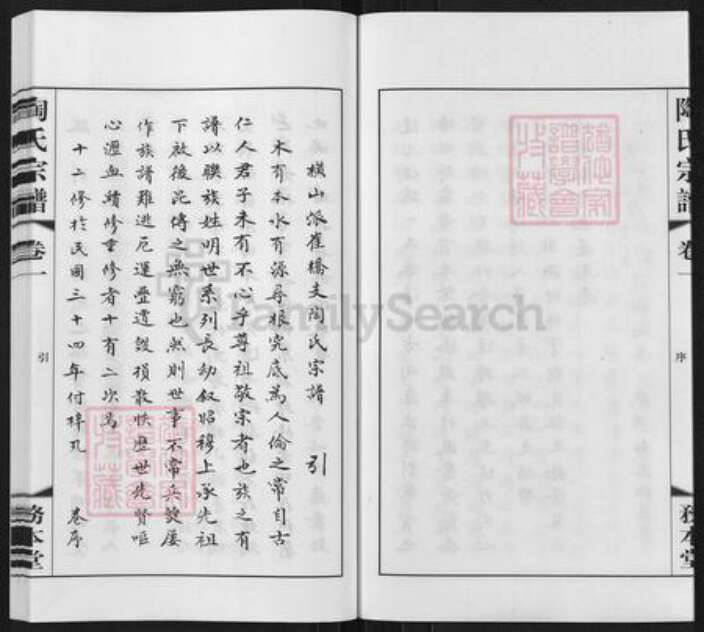 陶氏宗譜
卷一
序
務本堂
橫山派崔橋支陶氏宗譜 引
木有本水有源尋根究底為人倫之常自古
仁人君子未有不心乎尊祖敬宗者也族之有
譜以聯族姓明世系列長幼叙昭穆上承先祖
下啟後昆傳之無窮也然則世事不常兵燹屢
作族譜難逃厄運疊遭毀損散佚歷世先賢嘔
心瀝血續修重修者十有二次焉
十二修於民國三十四年付梓 卷序
陶氏宗譜
卷一
引
務本堂
FamilySearch